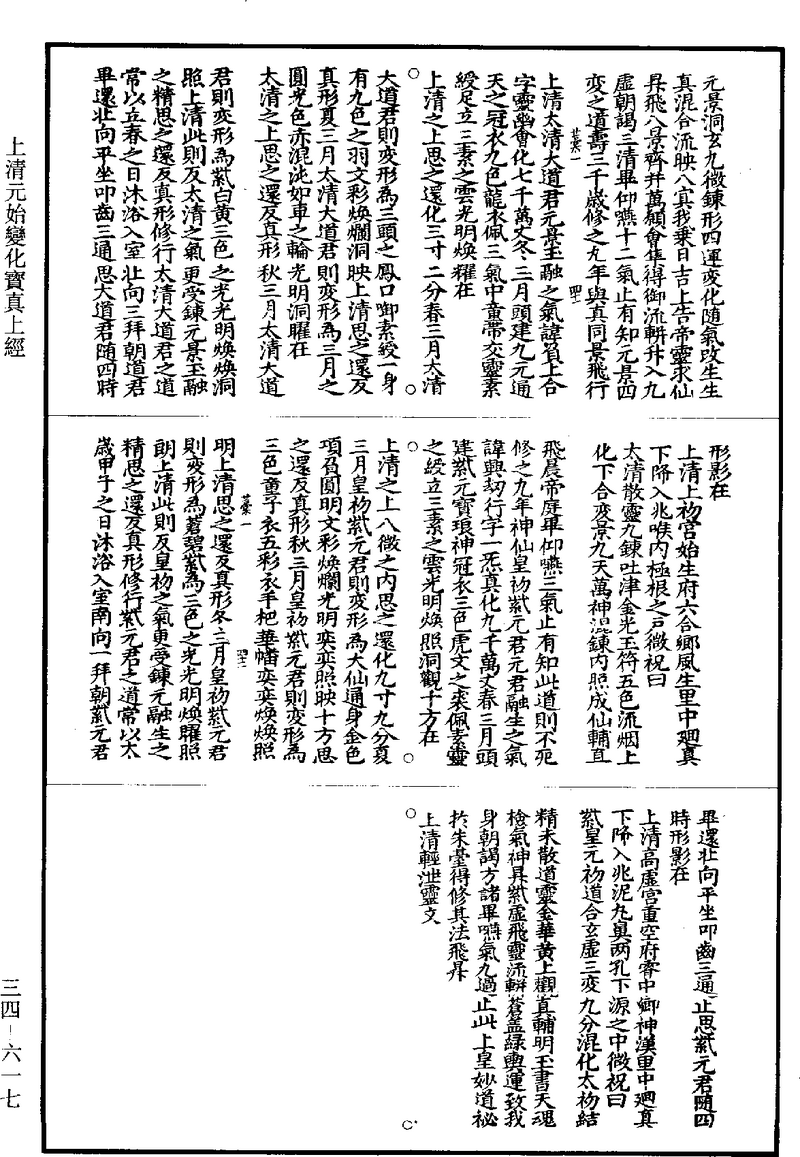 上清元始變化寶真上經
元景洞玄九微鍊形四運変化随氣改生生
真混合流映八寘我乗日吉上告帝靈求仙
昇飛八景齊并萬願會集得御流軿升入九
虛朝謁三清畢仰嚥十二氣止有知元景四
変之道壽三千歲修之九年與真同景飛行
上清太清大道君元景玉融之氣諱貟上合
字靈幽會化七千萬丈冬三月頭建九元通
天之冠衣九色龍衣佩三氣中童帶交靈素
綬足立三素之雲光明煥耀在
上清之上思之還化三寸二分春三月太清
大道君則変形為三頭之鳳口啣素綬一身
有九色之羽文彩煥爛洞映上清思之還反
真形夏三月太清大道君則変形為三月之
圓光色赤混沌如車之輪光明洞曜在
太清之上思之還反真形秋三月太清大道
君則変形為紫白黄三色之光光明煥煥洞
照上清此則反太清之氣更受鍊元景玉融
之精思之還反真形修行太清大道君之道
常以立春之日沐浴入室北向三拜朝道君
畢還北向平坐叩齒三通思大道君随四時
形影在
上清上初宫始生府六合鄉風生里中廻真
下降入兆喉内極根之户微祝曰
太清散靈九鍊吐津金光玉符五色流烟上
化下合変景九天萬神混鍊内照成仙輔直
飛晨帝庭畢仰嚥三氣止有知此道則不死
修之九年神仙皇初紫元君元君融生之氣
諱興刼行字一炁真化九千萬丈春三月頭
建紫元寶琅神冠衣三色虎文之裘佩素靈
之綬立三素之雲光明煥照洞觀十方在
上清之上八微之内思之還化九寸九分夏
三月皇初紫元君則変形為大仙通身金色
項負圓明文彩煥爛光明奕奕照映十方思
之還反真形秋三月皇初紫元君則変形為
三色童子衣五彩衣手把華幡奕奕煥煥照
明上清思之還反真形冬三月皇初紫元君
則変形為蒼碧紫為三色之光光明煥曜照
朗上清此則反皇初之氣更受鍊元融生之
精思之還反真形修行紫元君之道常以太
歲甲子之日沐浴入室南向一拜朝紫元君
畢還北向平坐叩齒三通止思紫元君随四
時形影在
上清高虛宫重空府㝐中鄉神漢里中廻真
下降入兆泥丸真两孔下源之中微祝曰
紫皇元初道合玄虛三変九分混化太初結
精未散道靈金華黄上觀真輔明玉書天魂
檢氣神昇紫虛飛靈流軿蒼盖緑輿運致我
身朝謁方諸畢嚥氣九過止此上皇妙道祕
扵朱臺得修其法飛昇
上清輕泄靈文
三四—六一七